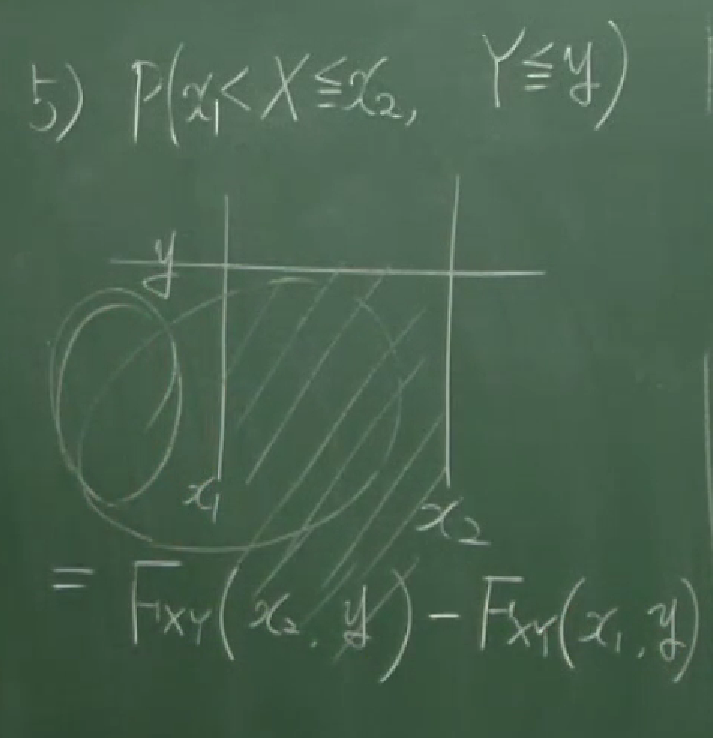 5) P(x₁ < X ≦ x₂, Y ≦ y)
y
x₁ x₂
= F_XY(x₂, y) - F_XY(x₁, y)